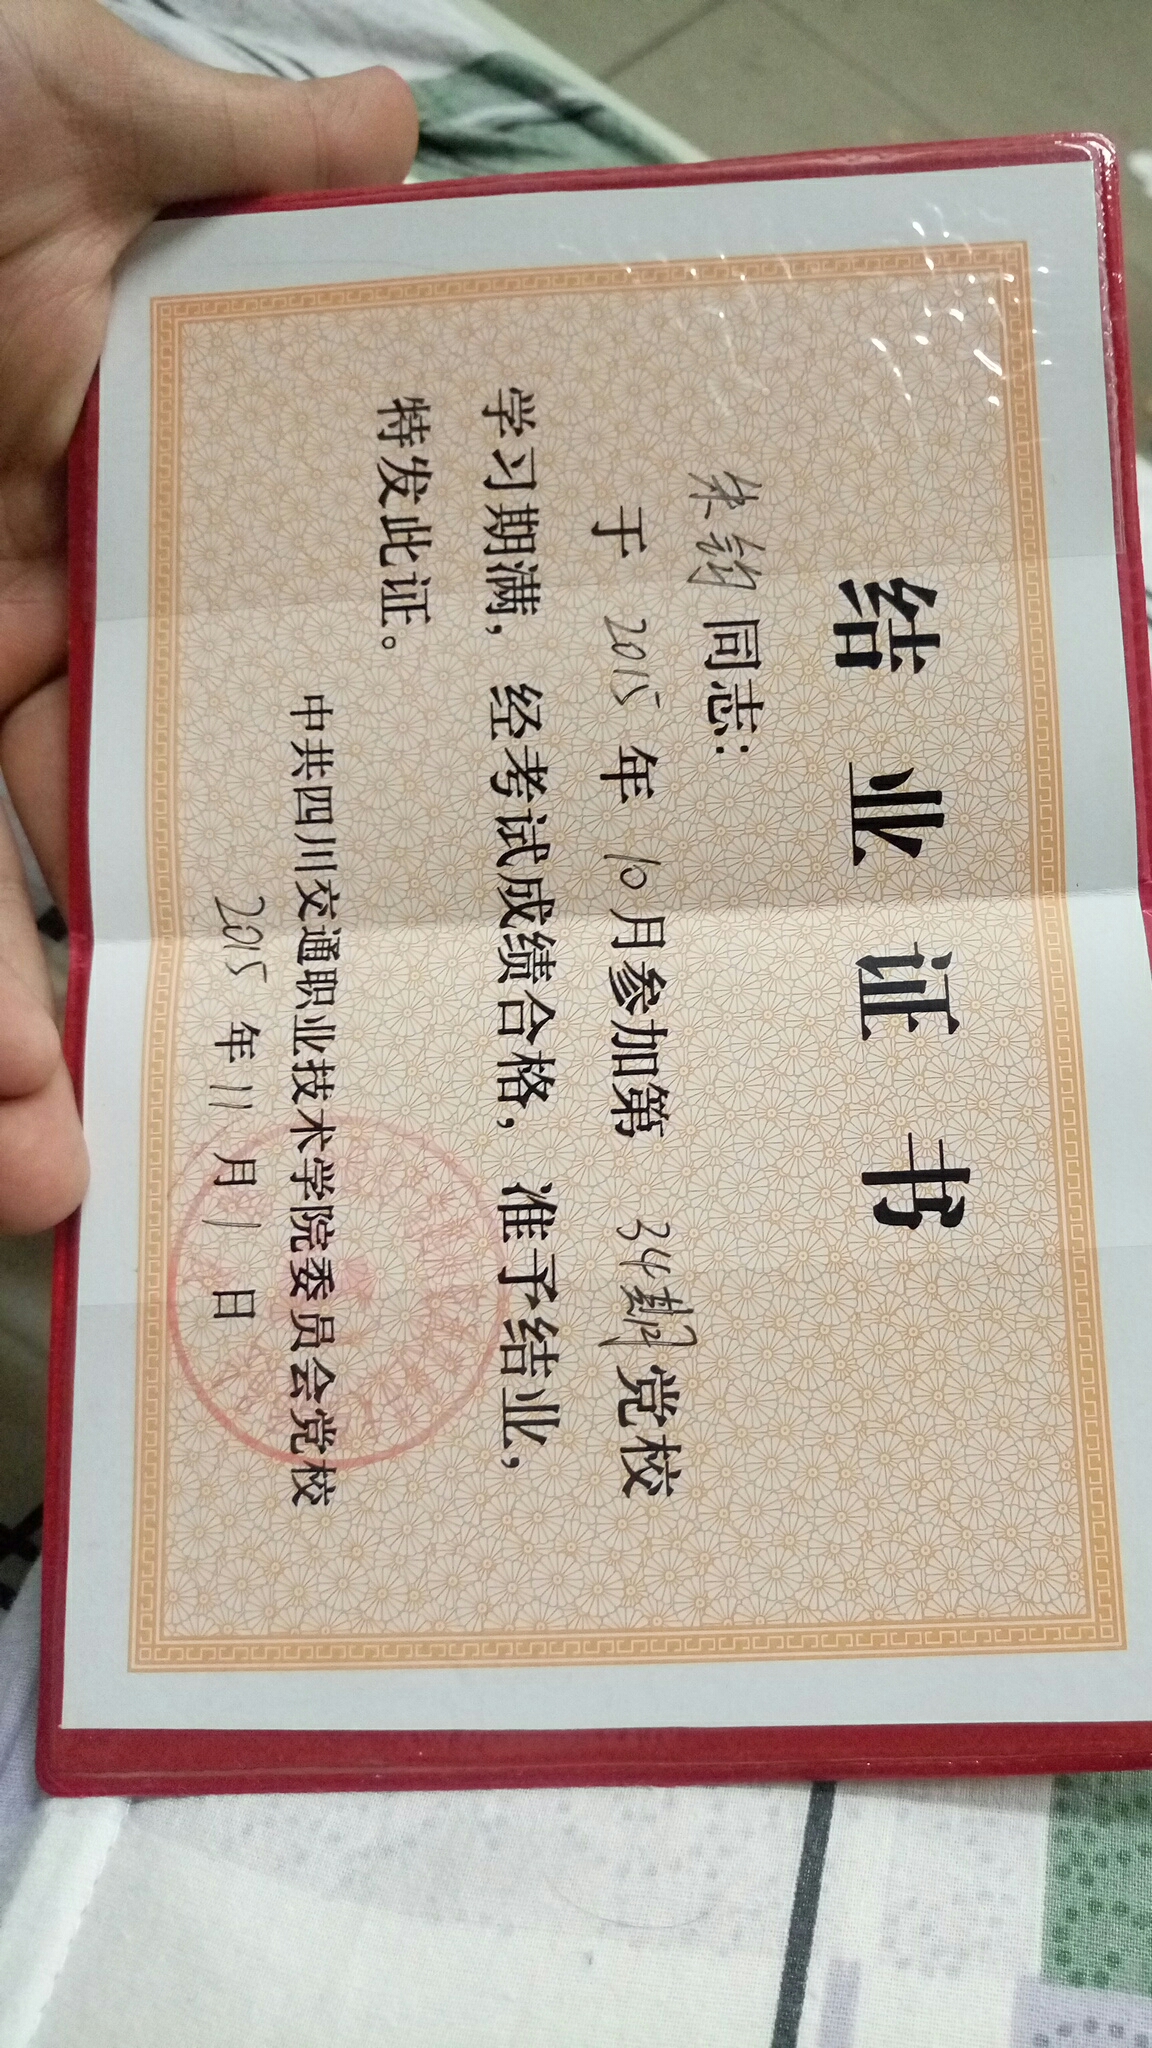 结业证书
朱钧同志：
于2015年10月参加第34期党校
学习期满，经考试成绩合格，准予结业，
特发此证。
中共四川交通职业技术学院委员会党校
2015年11月1日